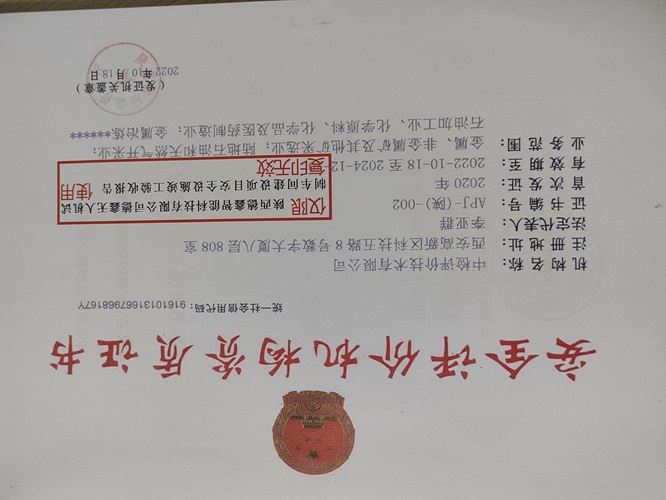 安全评价机构资质证书
统一社会信用代码：91610131667968167Y
机构名称：中检评价技术有限公司
注册地址：西安高新区科技五路8号数字大厦八层808室
法定代表人：李亚群
证书编号：APJ-(陕)-002
首次发证：2020年
有效期至：2022-10-18至2024-12-
业务范围：金属、非金属矿及其他矿采选业；陆地石油和天然气开采业；
石油加工业，化学原料、化学品及医药制造业；金属冶炼******
仅限 陕西德鑫智能科技有限公司德鑫无人机试
制车间建设项目安全设施竣工验收报告 使用
复印无效
（发证机关盖章）
2022年10月18日